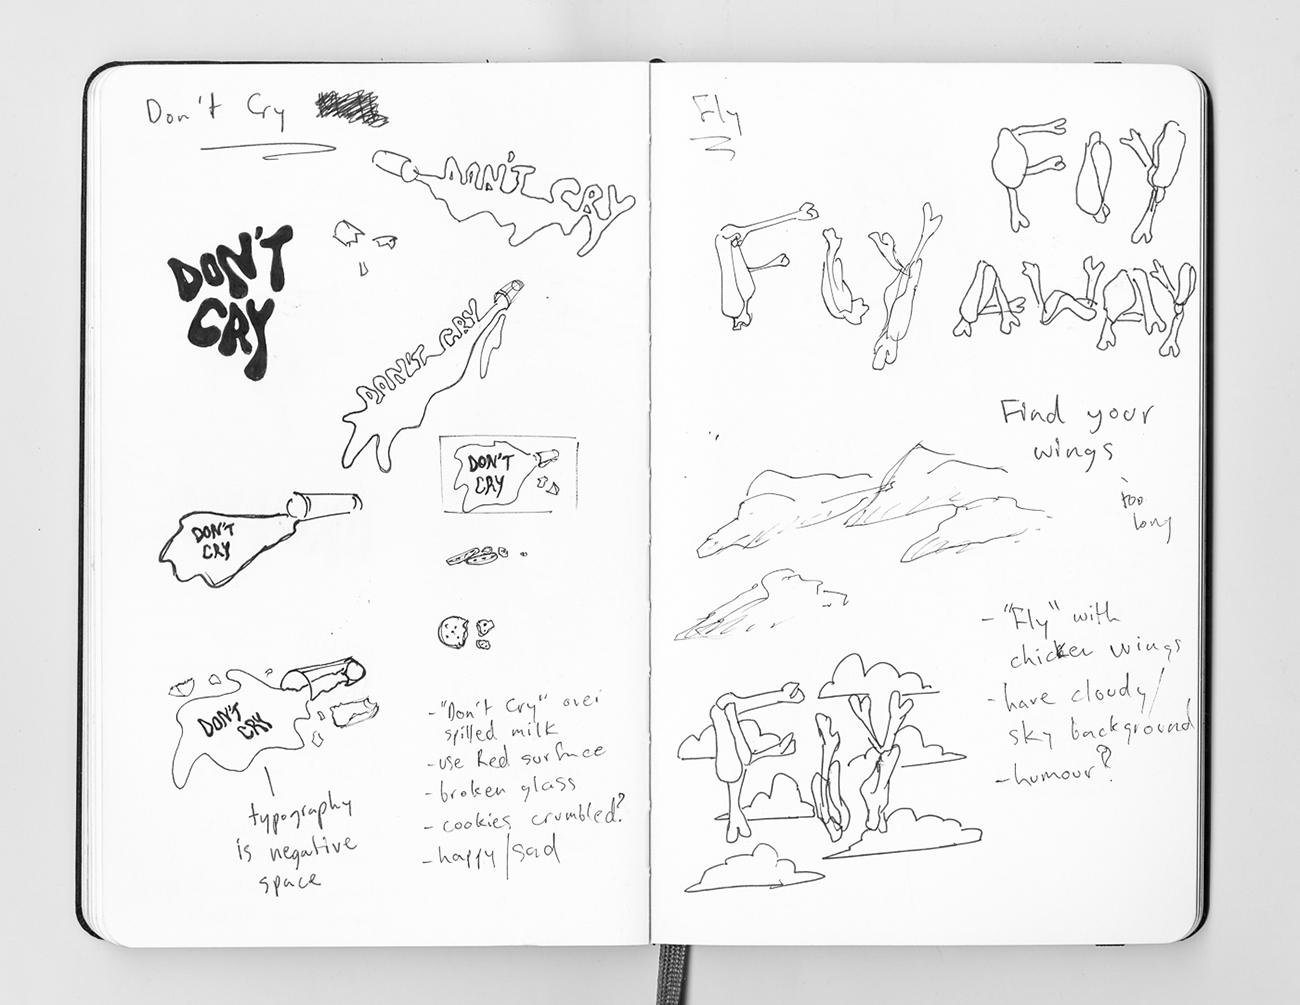 Don't Cry
DON'T CRY
DON'T
CRY
DON'T CRY
DON'T
CRY
DON'T
CRY
DON'T
CRY
typography
is negative
space
-"Don't Cry" over
spilled milk
-use Red surface
-broken glass
-cookies crumbled?
-happy/sad
Fly
FLY
FLY AWAY
Find your
wings
too
long
FLY
-"Fly" with
chicken wings
-have cloudy/
sky background
-humour?